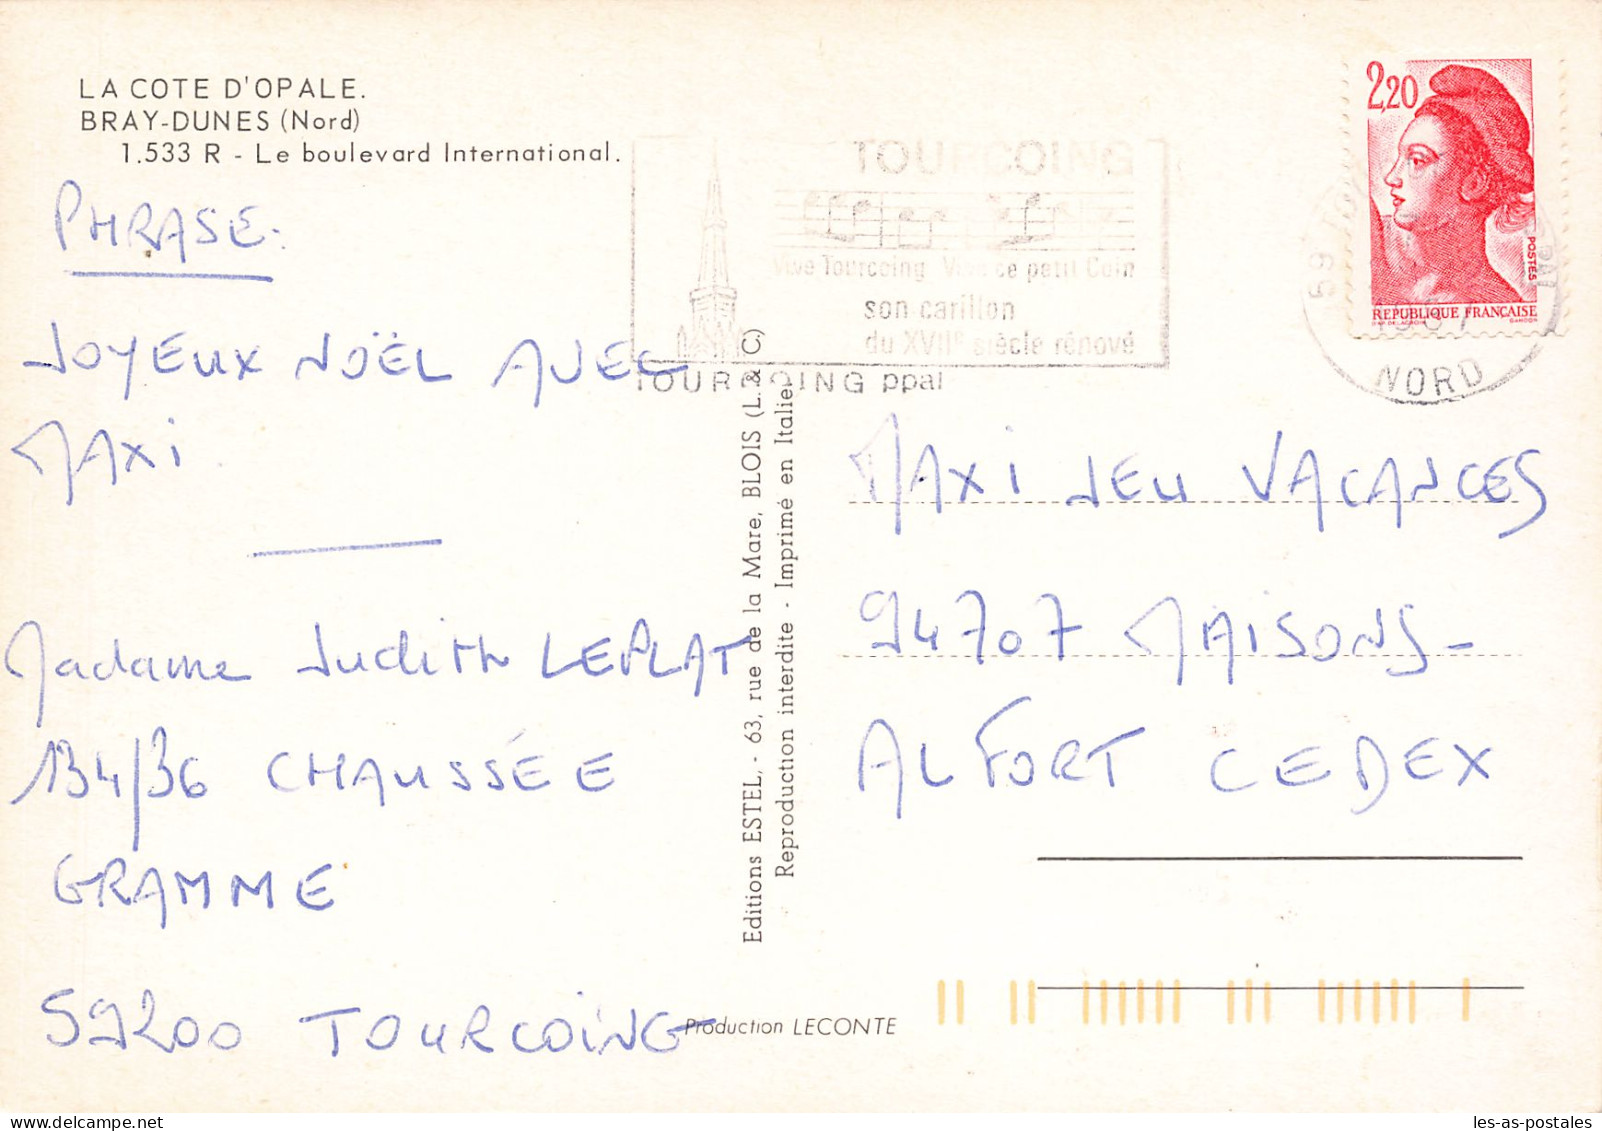 LA COTE D'OPALE.
BRAY-DUNES (Nord)
1.533 R - Le boulevard International.
PHRASE.
JOYEUX NOËL AVEC
MAXI
Madame Judith LEPLAT
134/36 CHAUSSÉE
GRAMME
59200 TOURCOING
TOURCOING
Vive Tourcoing Vive ce petit Coin
son carillon
du XVIIe siècle rénové
TOURCOING ppal
2,20
POSTES
REPUBLIQUE FRANÇAISE
NORD
Editions ESTEL, - 63, rue de la Mare, BLOIS (L. & C)
Reproduction interdite - Imprimé en Italie
MAXI JEU VACANCES
94707 MAISONS-
ALFORT CEDEX
Production LECONTE
les-as-postales